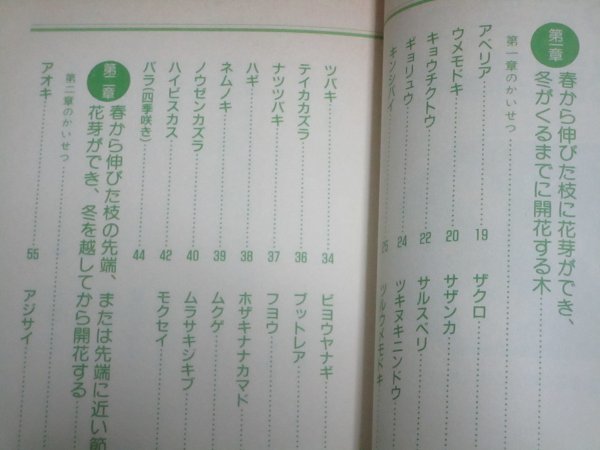 第一章
春から伸びた枝に花芽ができ、
冬がくるまでに開花する木
第一章のかいせつ
アベリア 19
ウメモドキ 20
キョウチクトウ 22
ギョリュウ 24
キンシバイ 25
ザクロ
サザンカ
サルスベリ
ツキヌキニンドウ
ツルウメモドキ
ツバキ 34
テイカカズラ 36
ナツツバキ 37
ハギ 38
ネムノキ 39
ノウゼンカズラ 40
ハイビスカス 42
バラ(四季咲き) 44
ビヨウヤナギ
ブットレア
フヨウ
ホザキナナカマド
ムクゲ
ムラサキシキブ
モクセイ
第二章
春から伸びた枝の先端、または先端に近い節
花芽ができ、冬を越してから開花する
第二章のかいせつ
アオキ 55
アジサイ